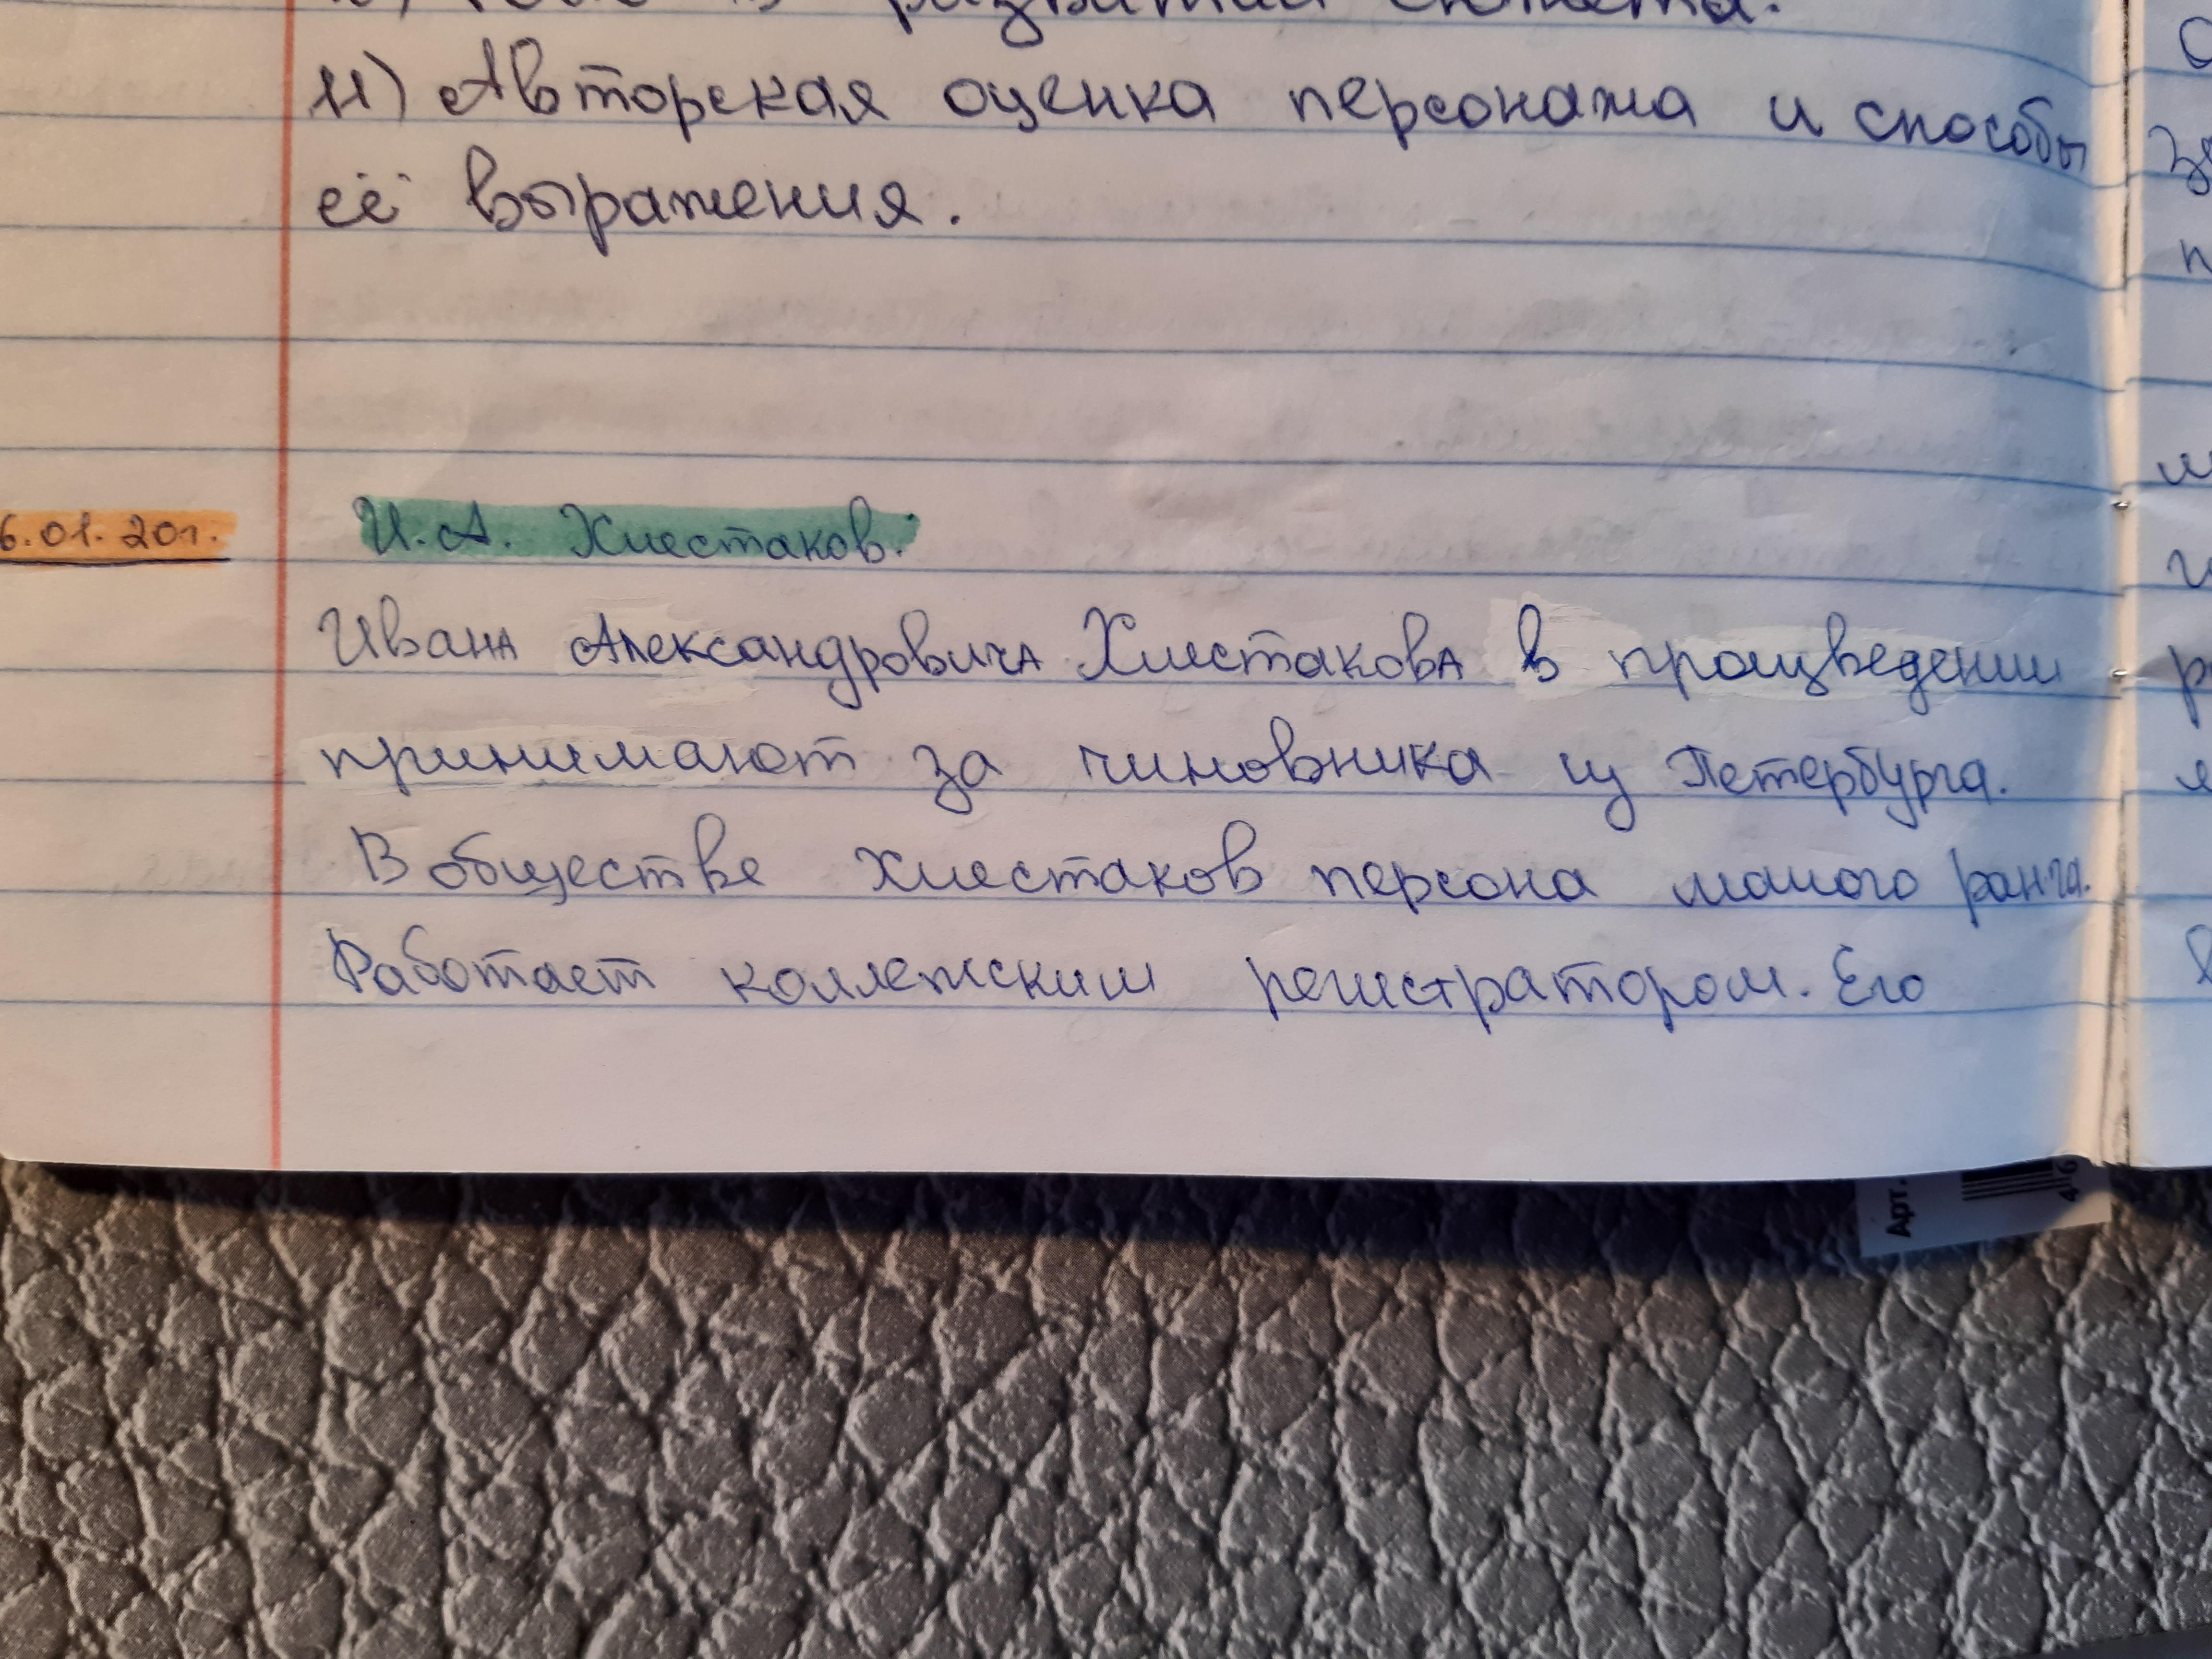 развитии сюжета.
11) Авторская оценка персонажа и способы
её выражения.
6.01.20г. И. А. Хлестаков.
Ивана Александровича Хлестакова в произведении
принимают за чиновника из Петербурга.
В обществе Хлестаков персона малого ранга.
Работает коллежским регистратором. Его
Арт.